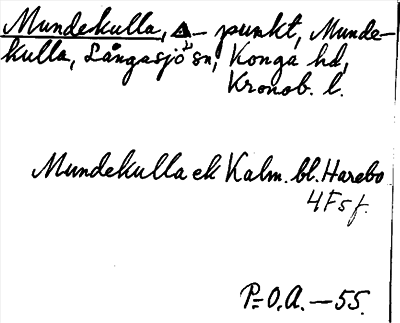 Mundekulla, △- punkt, Munde-
kulla, Långasjö sn, Konga hd,
Kronob. l.
Mundekulla ek Kalm. bl. Harebo
4F5f.
P.O.A.-55.